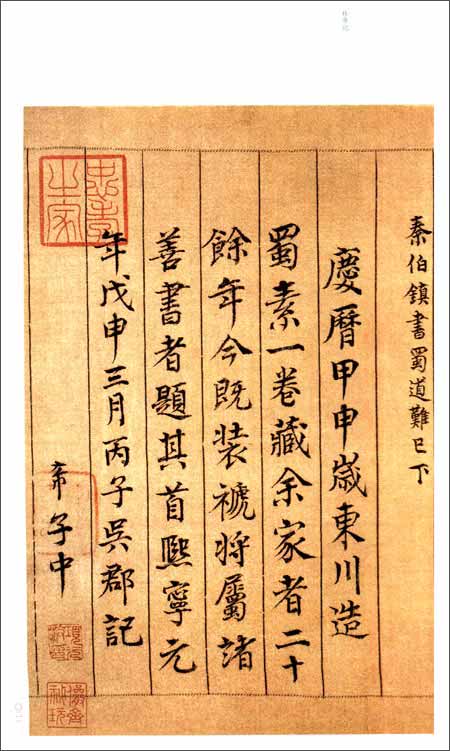 秦伯鎮書蜀道難已下
慶曆甲申歲東川造
蜀素一卷藏余家者二十
餘年今既裝褫將屬諸
善書者題其首熙寧元
年戊申三月丙子吳郡記
希子中
忠孝之家